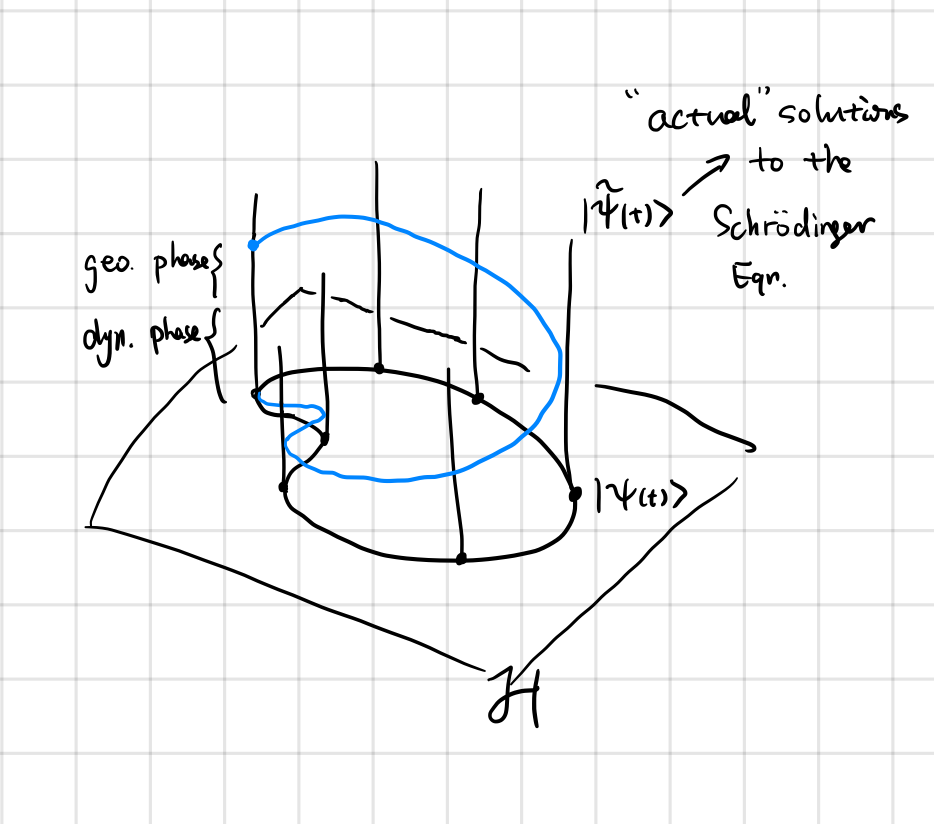 "actual" solutions
to the
Schrödinger
Eqn.
|ψ̃(t)>
geo. phase
dyn. phase
|ψ(t)>
H